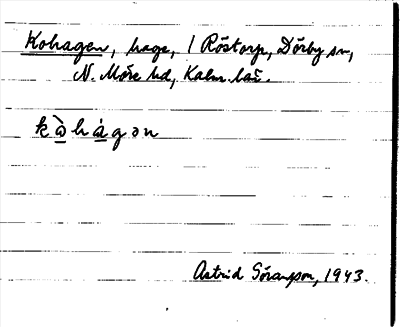 Kohagen, hage, / Röstorp, Dörby sn,
N. Möre hd, Kalm. län.
kò̱há̱gən
Astrid Göransson, 1943.